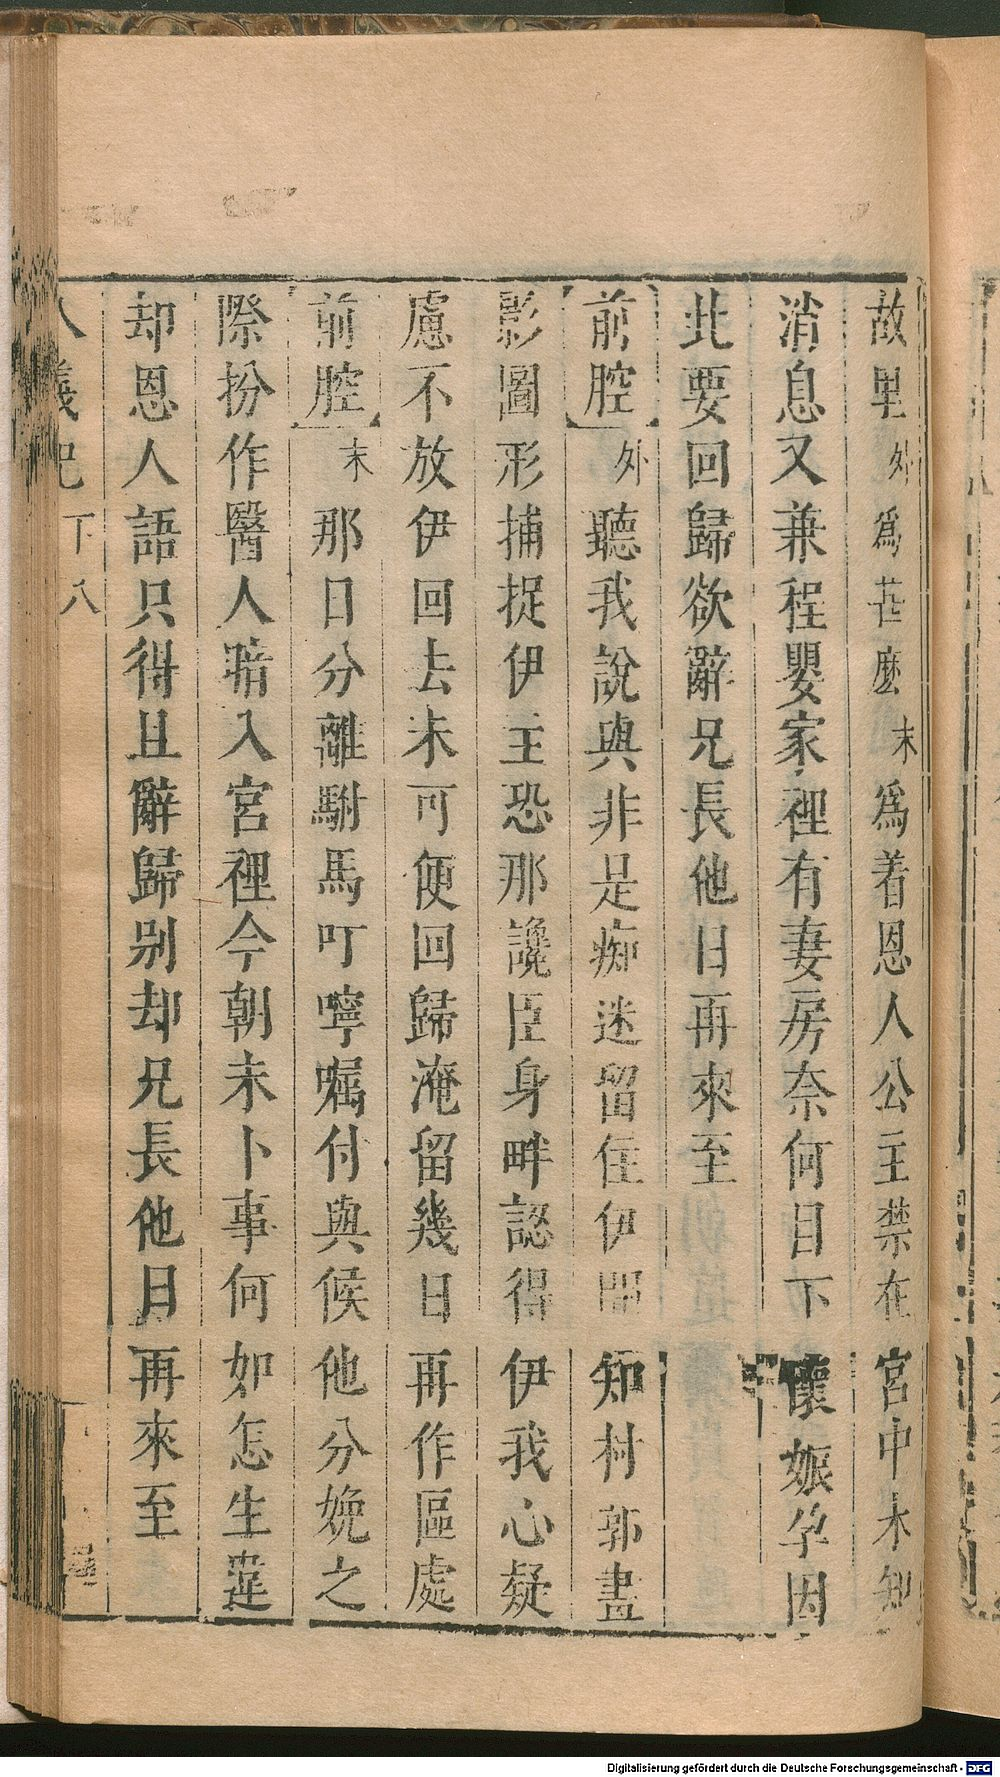 故里外爲甚麼末爲着恩人公主禁在宮中未知
消息又兼程嬰家裡有妻房奈何目下懷娠孕因
此要回歸欲辭兄長他日再來至
前腔外聽我說與非是痴迷留住伊 知村郭畫
影圖形捕捉伊主恐那讒臣身畔認得伊我心疑
慮不放伊回去未可便回歸淹留幾日再作區處
前腔末那日分離駙馬叮嚀囑付與候他分娩之
際扮作醫人暗入宮裡今朝未卜事何如怎生違
却恩人語只得且辭歸别却兄長他日再來至
八義記 下 八
Digitalisierung gefördert durch die Deutsche Forschungsgemeinschaft - DFG